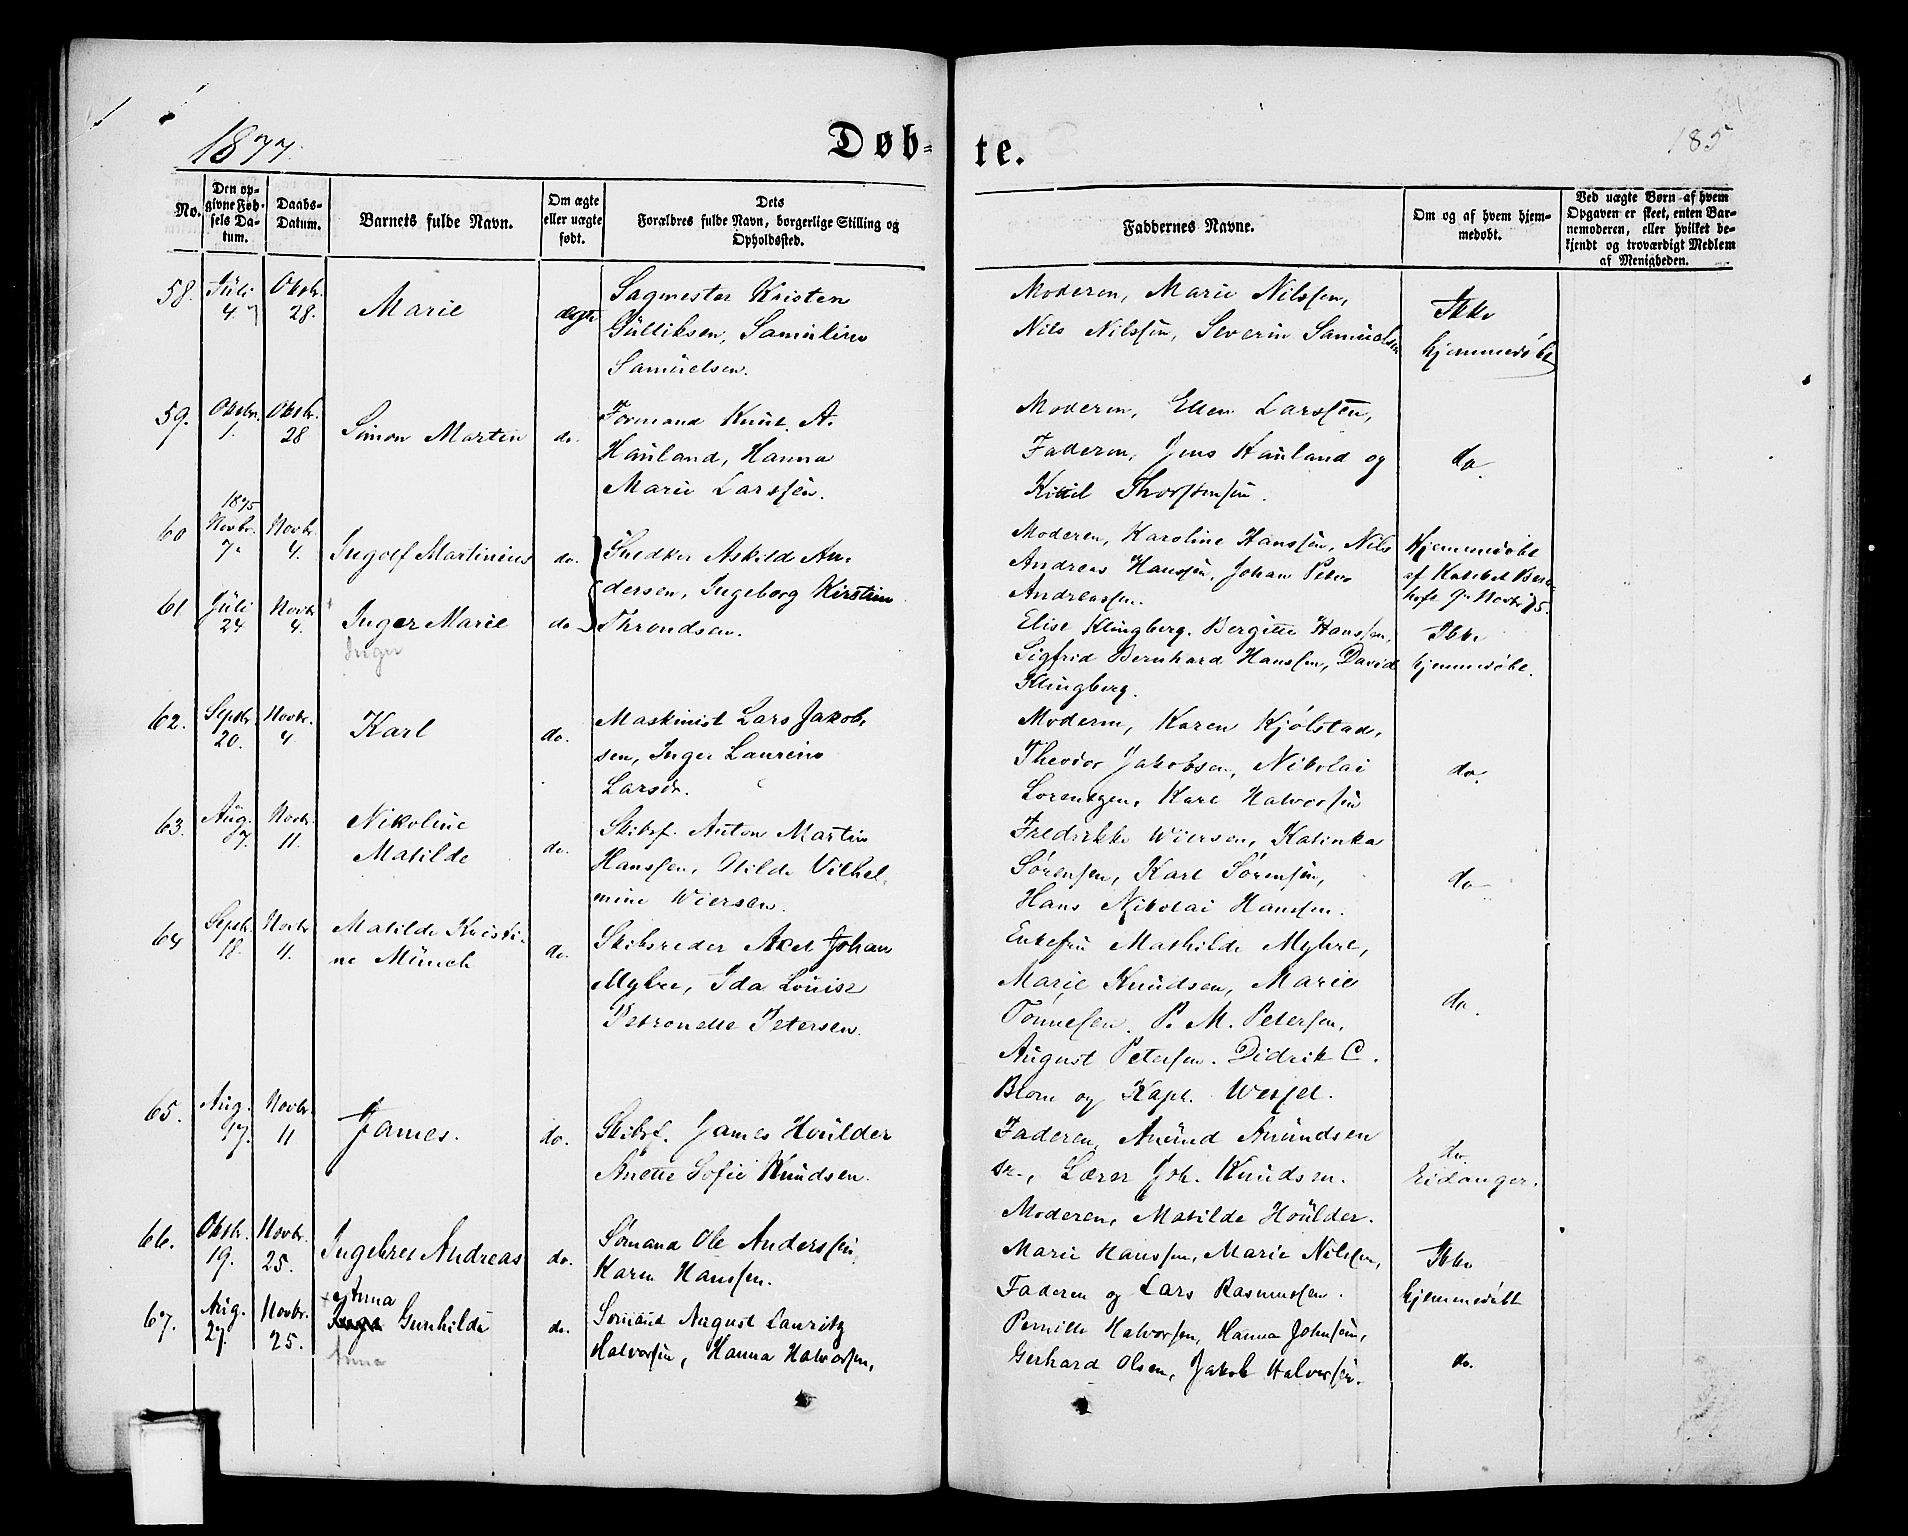 1877.
Døb-
te.
185
No.
Den op-
givne Fød-
sels Da-
tum.
Daabs-
Datum.
Barnets fulde Navn.
Om ægte
eller uægte
født.
Dets
Forældres fulde Navn, borgerlige Stilling og
Opholdssted.
Faddernes Navne.
Om og af hvem hjem-
medøbt.
Ved uægte Børn af hvem
Opgaven er skeet, enten Bar-
nemoderen, eller hvilket be-
kjendt og troværdigt Medlem
af Menigheden.
58.
Juli
4.
Oktbr.
28.
Marie
ægte
Sagmester Kristen
Gulliksen, Samuline
Samuelsen.
Moderen, Marie Nilssen,
Nils Nilssen, Severin Samuelsen
Ikke
hjemmedøbt
59.
Oktbr.
1.
Oktbr.
28
Simon Martin
do.
Formand Knut A.
Hauland, Hanna
Marie Larssen.
Moderen, Ellen Larssen,
Faderen, Jens Hauland og
Kittil Thorstensen.
do.
60
1875
Novbr.
7.
Novbr.
4.
Ingolf Martinius
do.
Snedker Askild An-
dersen, Ingeborg Kirstine
Throndsen.
Moderen, Karoline Hanssen, Nils
Andreas Hanssen, Johan Peter
Andreassen.
Hjemmedøbt
af Katebet
9de Novbr 75.
61
Juli
24
Novbr
4.
Inger Marie
Inger
do
Elise Klingberg. Bergitte Hanssen,
Sigfrid Bernhard Hanssen, David
Klingberg.
Ikke
hjemmedøbt.
62.
Septbr.
20.
Novbr.
4.
Karl
do.
Maskinist Lars Jakob-
sen, Inger Laurine
Larsdr.
Moderen, Karen Kjølstad,
Theodor Jakobsen, Nikolai
Lorentzen, Karl Halvorsen
do.
63.
Aug.
17.
Novbr.
11.
Nikoline
Matilde
do.
Skibsf. Anton Martin
Hanssen, Hilda Vilhel-
mine Wiersen.
Fredrikke Wiersen, Katinka
Sørensen, Karl Sørensen,
Hans Nikolai Hanssen.
do
64
Septbr.
18.
Novbr
11.
Matilde Kristi-
ne Münch
do.
Skibsreder Axel Johan
Myhre, Ida Louise
Petronelle Petersen.
Enkefru Mathilde Myhre,
Marie Knudsen, Marie
Tønnesen. P. M. Petersen,
August Petersen. Didrik C.
Blom og Kapt. Wessel.
do.
65.
Aug.
17.
Novbr.
11
James.
do.
Skibsf. James Houlder
Anette Sofie Knudsen.
Faderen, Anund Anundsen
sr., Lærer Joh. Knudsen.
Moderen, Matilde Houlder.
do.
Eidanger.
66.
Oktbr.
19.
Novbr.
25.
Ingebret Andreas
do.
Sømand Ole Anderssen,
Karen Hanssen.
Marie Hanssen, Marie Nilssen,
Faderen og Lars Rasmussen.
Ikke
hjemmedøbt
67.
Aug.
27.
Novbr.
25.
Anna
Inga Gunhilde
Anna
do.
Sømand August Lauritz
Halvorsen, Hanna Halvorsen.
Pernille Halvorsen, Hanna Johnsen,
Gerhard Olsen, Jakob Halvorsen.
do.